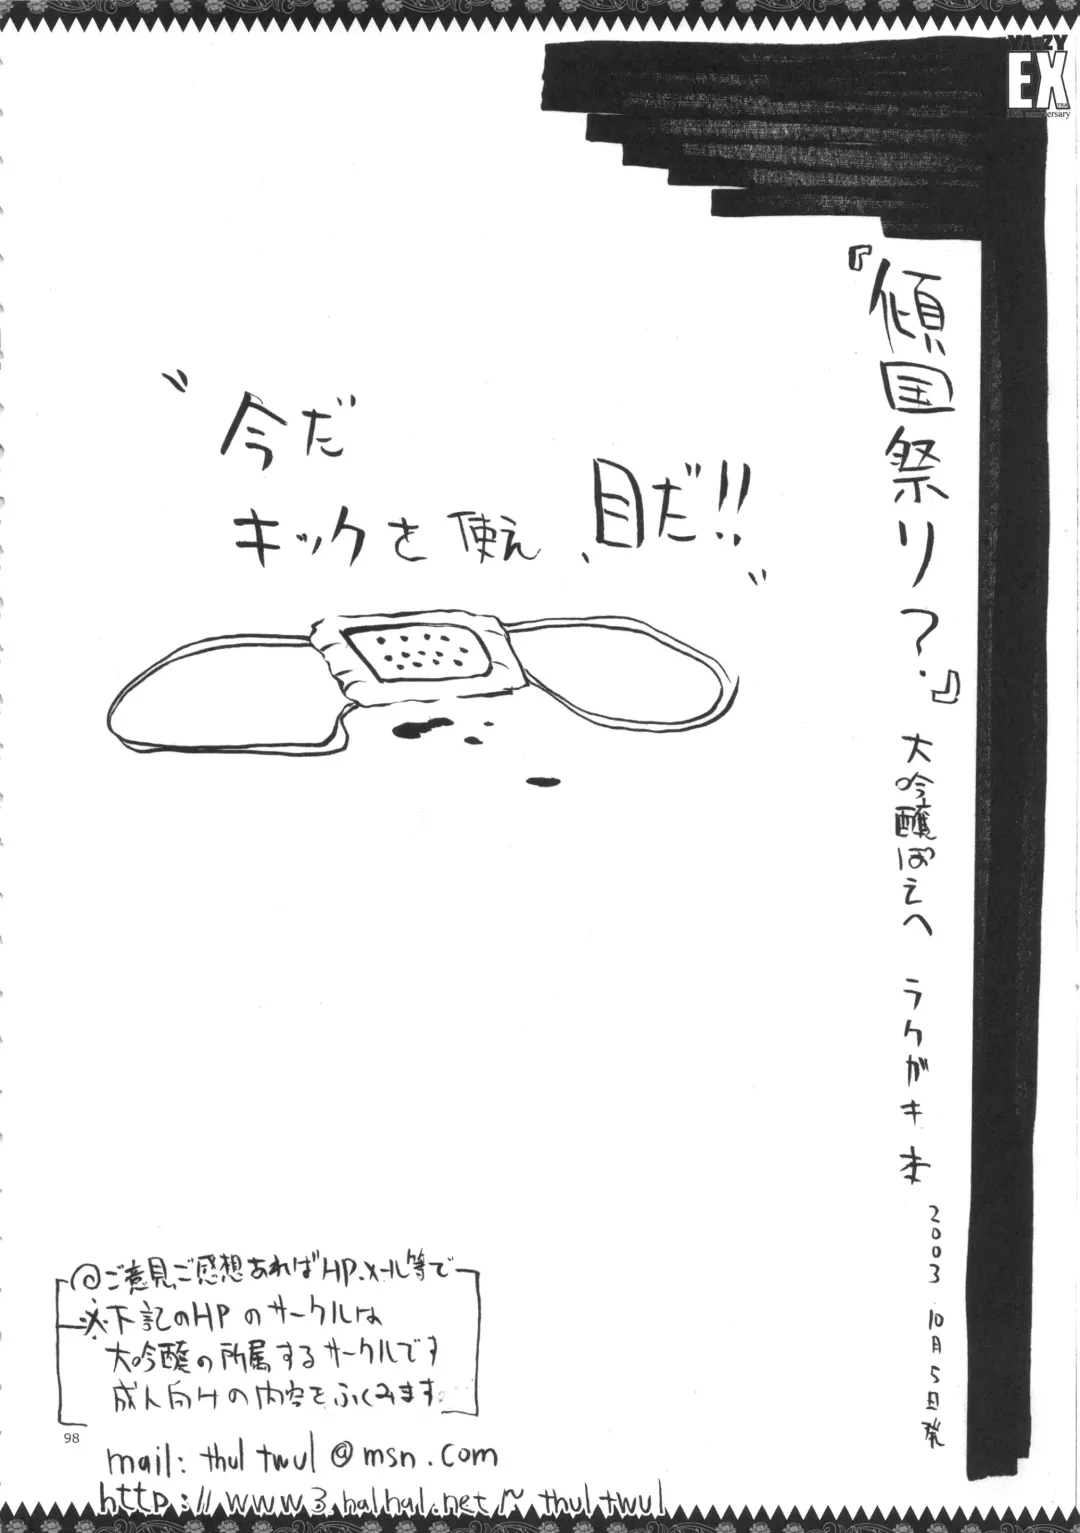 YA-ZY
EX
『傾国祭り？』
大吟醸ばえへ ラクガキ本
2003 10月5日発
〝今だ
キックを使え、目だ!!〟
@ご意見ご感想あればHP、メール等で
※下記のHPのサークルは
大吟醸の所属するサークルです
成人向けの内容をふくみます
98
mail: thultwul@msn.com
http://www3.halhal.net/~thultwul